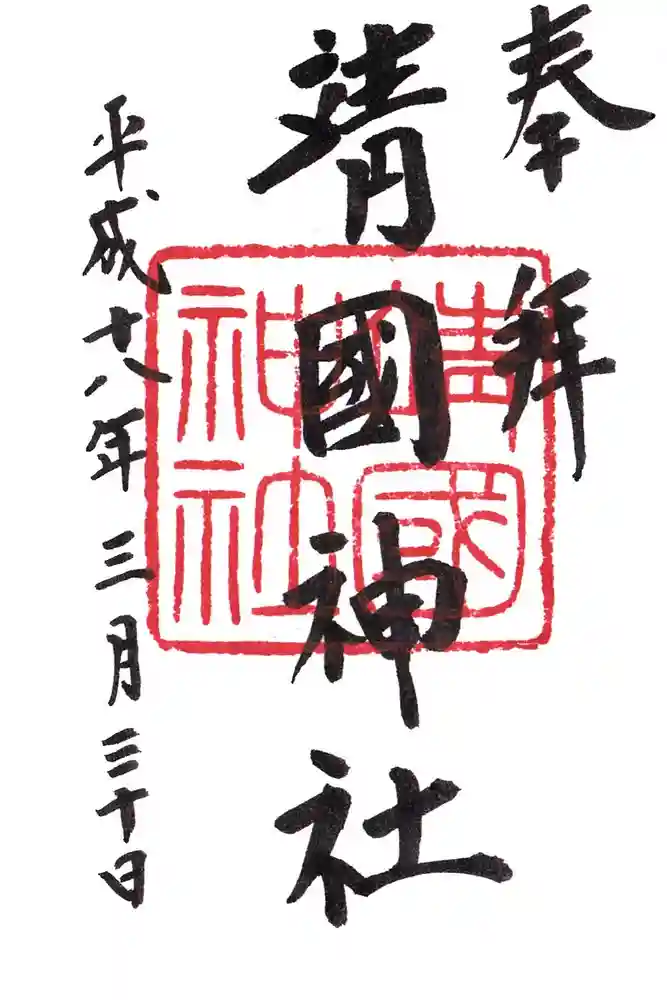 奉拝
靖國神社
靖國神社
平成十八年三月三十日